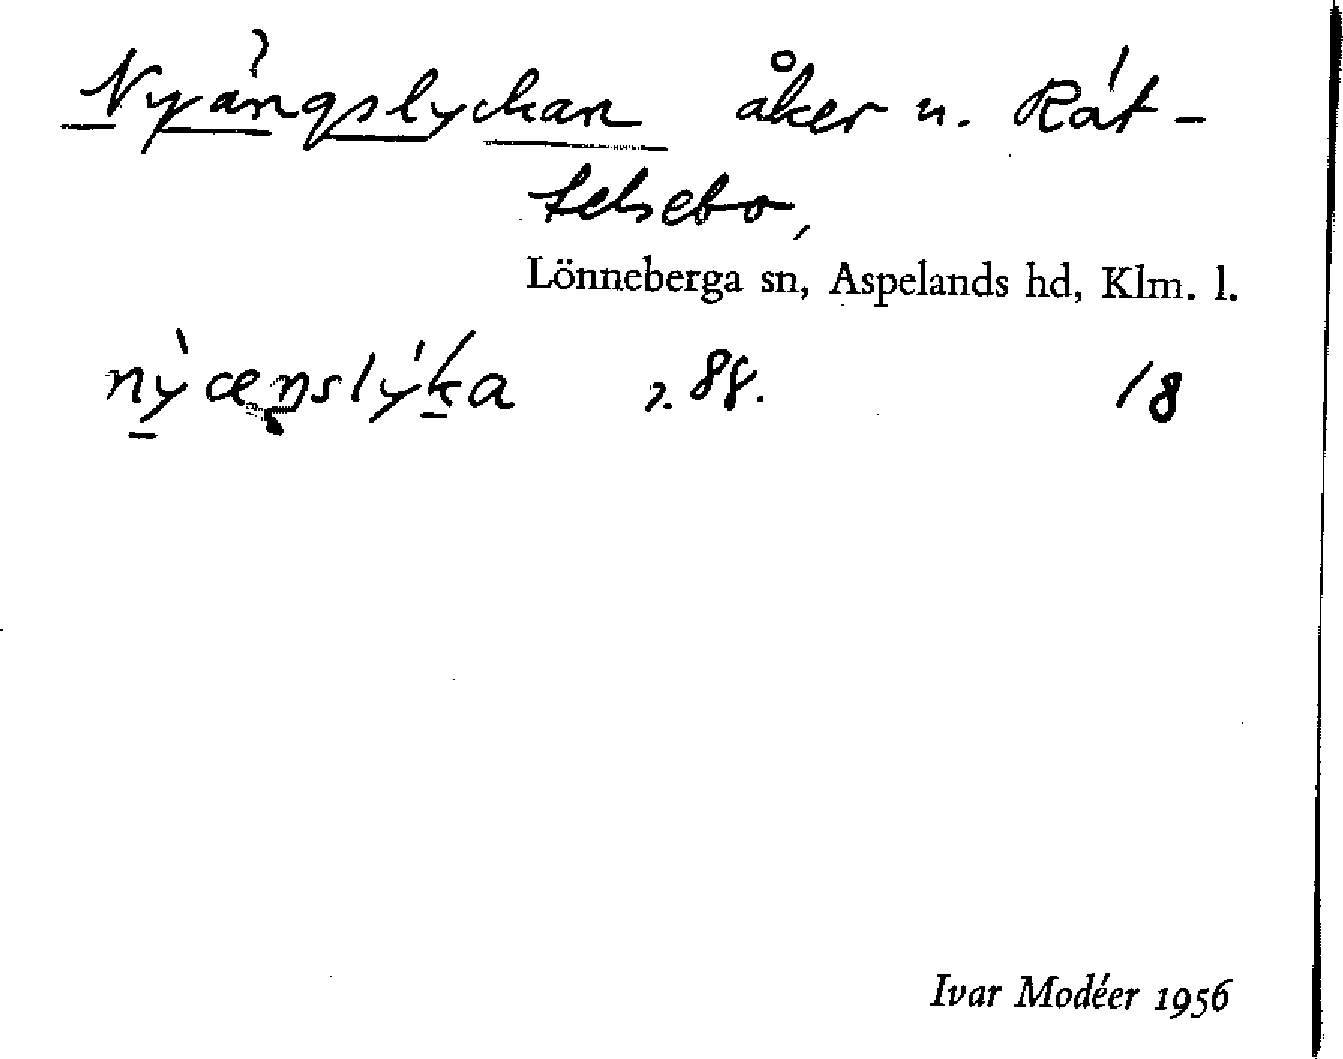 Nyängslyckan åker u. Rát-
telsebo,
Lönneberga sn, Aspelands hd, Klm. l.
88. 18
Ivar Modéer 1956